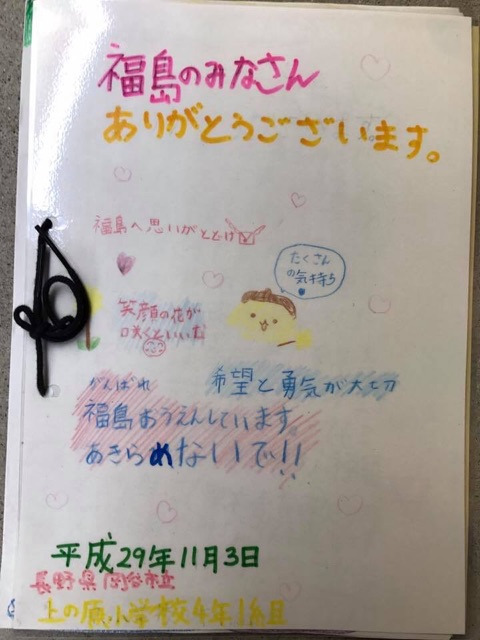 福島のみなさん
ありがとうございます。
福島へ思いがとどけ
たくさん
の気持ち
笑顔の花が
咲くといいな
がんばれ
希望と勇気が大切
福島おうえんしています。
あきらめないで!!
平成29年11月3日
長野県岡谷市立
上の原小学校4年1組